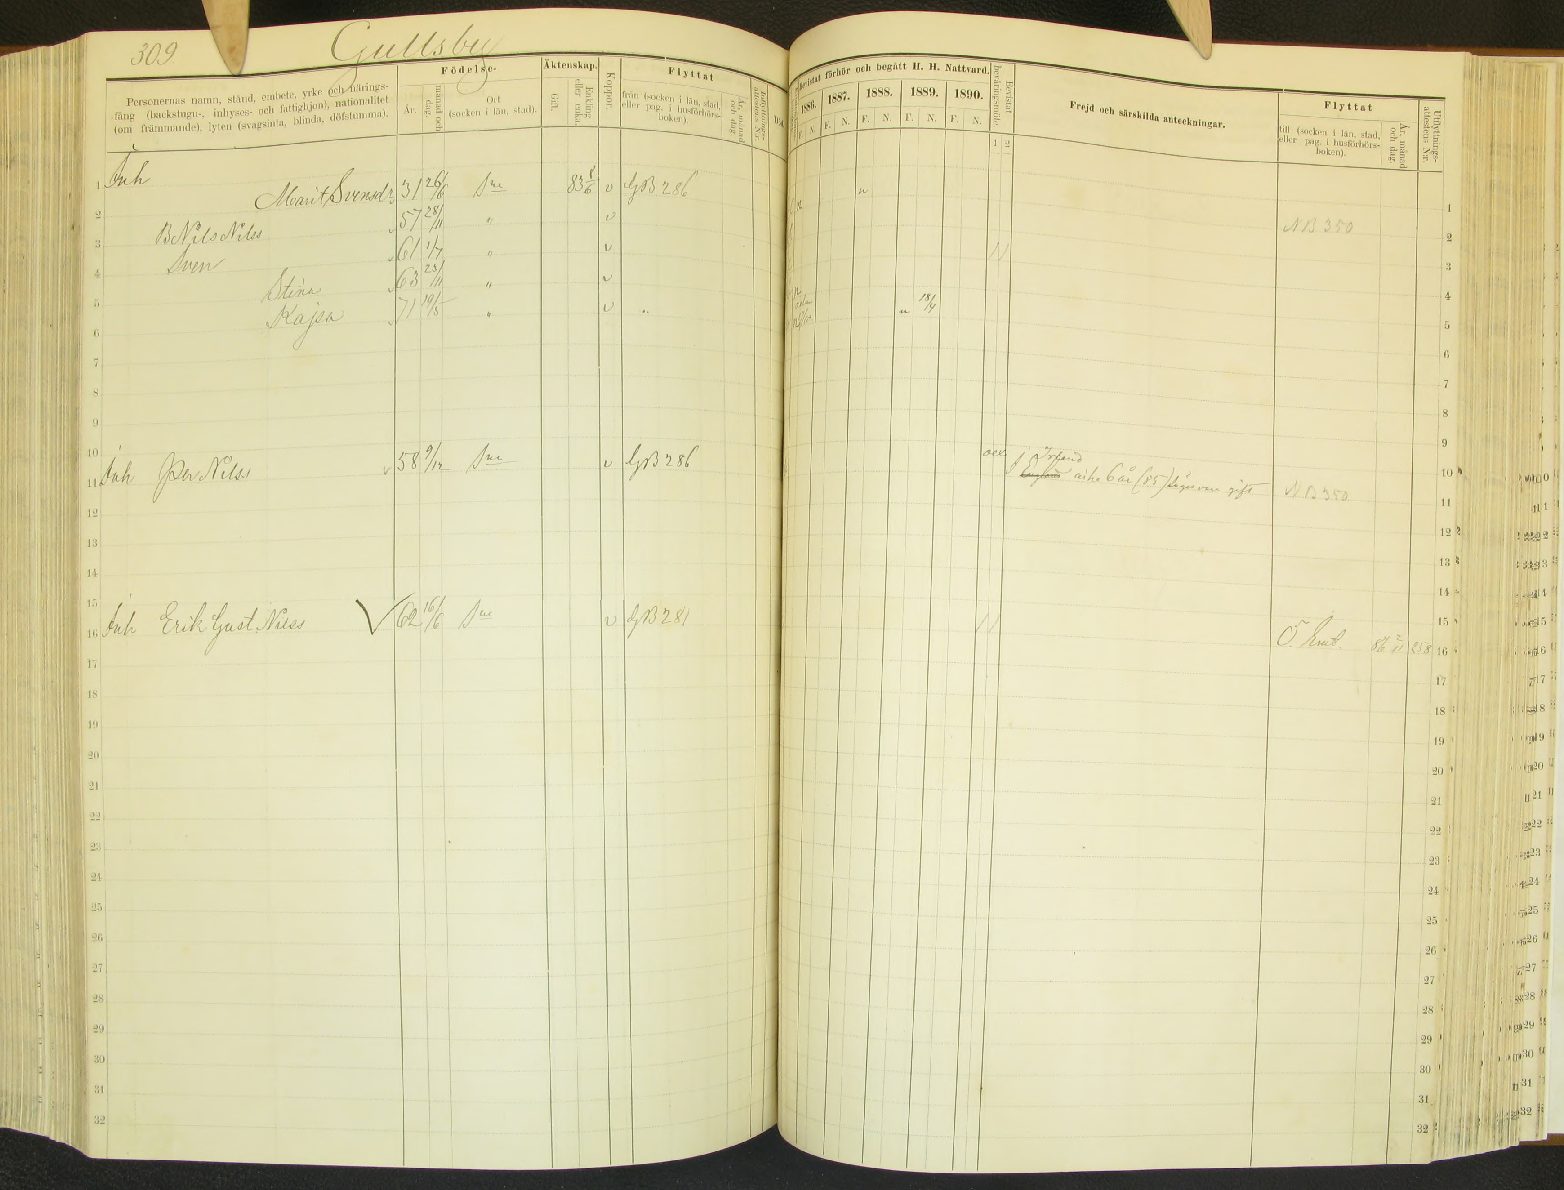 309 Gullsby
Personernas namn, stånd, embete, yrke och närings-
fång (backstugu-, inhyses- och fattighjon), nationalitet
(om främmande), lyten (svagsinta, blinda, döfstumma).
Födelse-
År.
månad och dag.
Ort
(socken i län, stad).
Äktenskap.
Gift.
Enkling eller enka.
Koppor.
Flyttat
från (socken i län, stad,
eller pag. i husförhörs-
boken).
År, månad och dag.
Bevistat förhör och begått H. H. Nattvard.
1886. 1887. 1888. 1889. 1890.
F. N. F. N. F. N. F. N. F. N.
Bevistat beväringsmöte.
1 2
Frejd och särskilda anteckningar.
Flyttat
till (socken i län, stad,
eller pag. i husförhörs-
boken).
År, månad och dag.
Utflyttnings-attestens Nr.
1 Inh Marit Svensd:r 31 26/6 Sne 83 8/6 v GB 286 1
2 B Nils Nilss 57 28/11 " v NB 350 2
3 Sven 61 1/7 " v 3
4 Stina 63 23/11 " v 4
5 Kajsa 71 19/5 " v " 18/4 5
6 6
7 7
8 8
9 9
10 10
11 Inh Per Nilss 58 9/12 Sne v GB 286 Irland
England 6 år (85) säges vara gift NB 350 11
12 12
13 13
14 14
15 15
16 Inh Erik Gust. Nilss 62 16/6 Sne v GB 281 Ö. 86 2/11 258 16
17 17
18 18
19 19
20 20
21 21
22 22
23 23
24 24
25 25
26 26
27 27
28 28
29 29
30 30
31 31
32 32